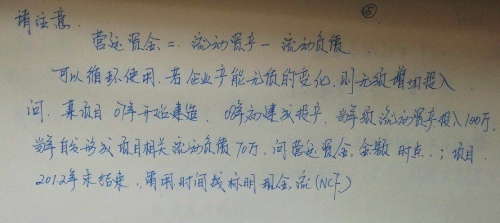 请注意 ⑤
营运资金 = 流动资产 - 流动负债
可以循环使用. 若企业产能无质的变化, 则无须增加投入
问. 某项目 07年开始建造. 08年初建成投产. 当年须流动资产投入100万,
当年自发形成项目相关流动负债70万. 问营运资金. 金额 时点. ; 项目
2012年末结束. 请用时间线标明现金流 (NCF)